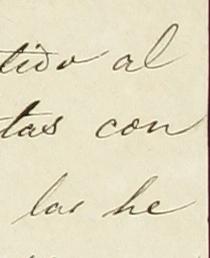 tido al
tas con
las he